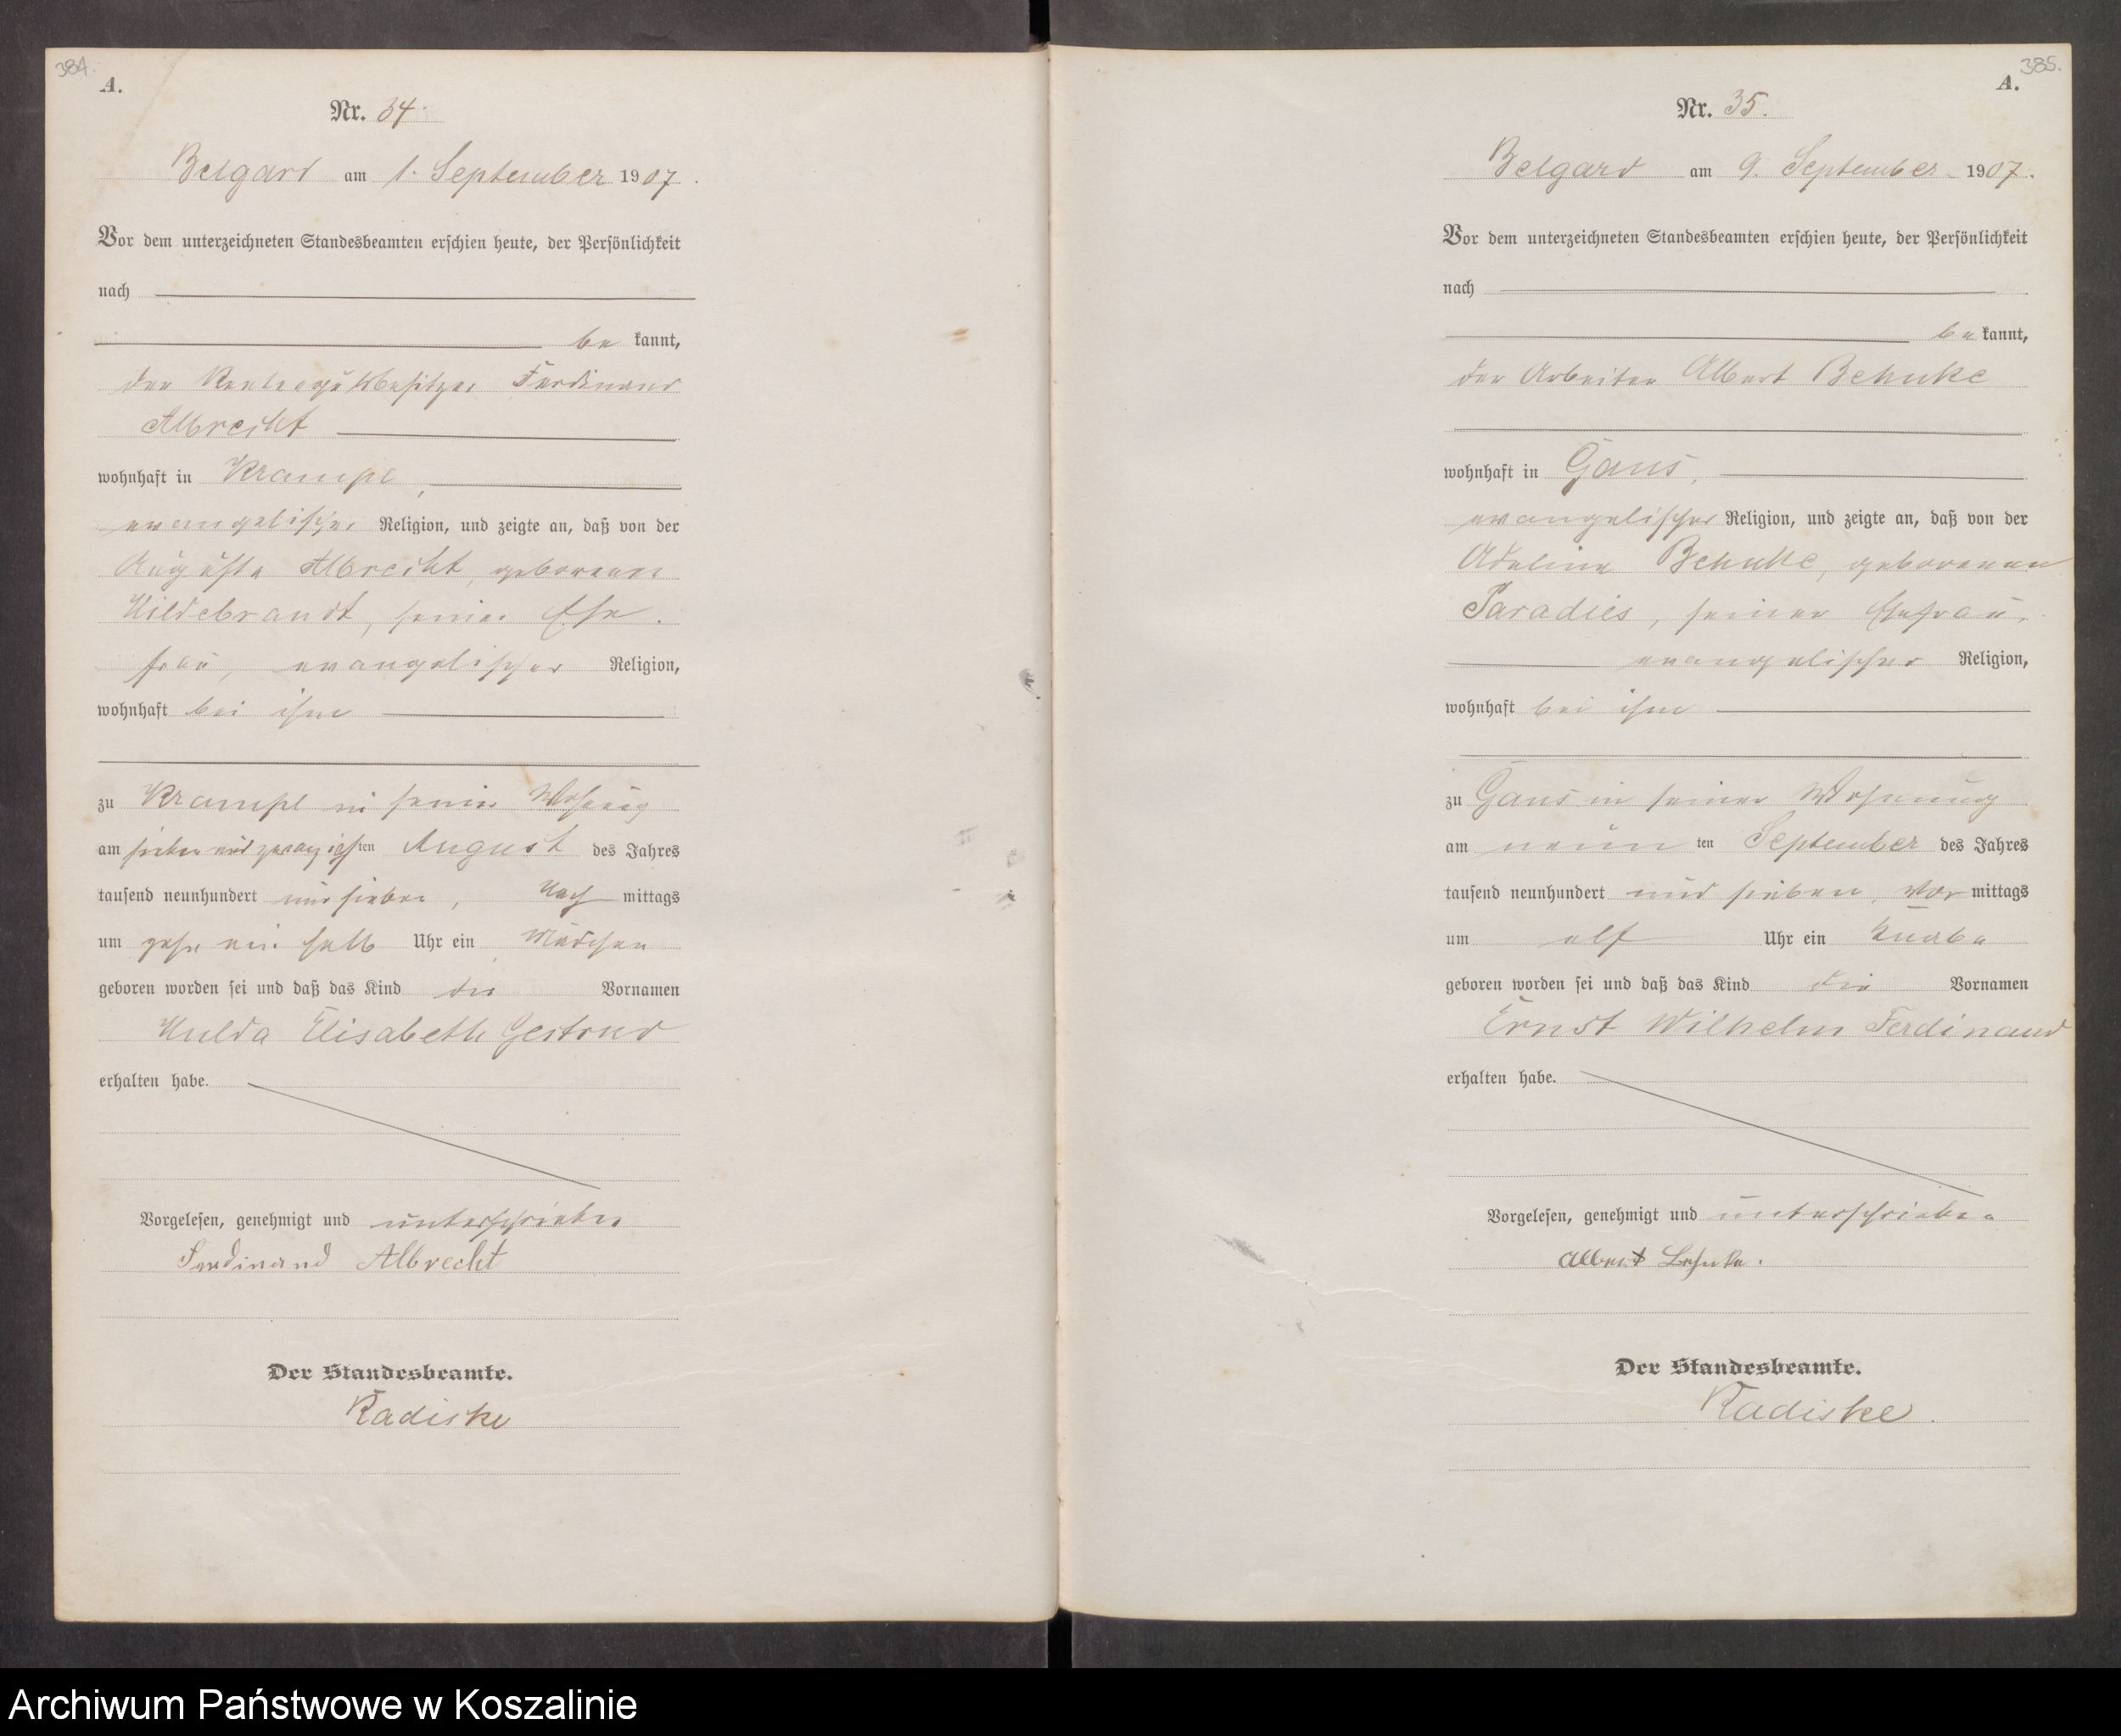 384.
A.
Nr. 34.
Belgard am 1. September 1907.
Vor dem unterzeichneten Standesbeamten erschien heute, der Persönlichkeit
nach
be kannt,
der Rentengutsbesitzer Ferdinand
Albrecht
wohnhaft in Krampe,
evangelischer Religion, und zeigte an, daß von der
Auguste Albrecht, geborenen
Hildebrandt, seiner Ehe-
frau, evangelischer Religion,
wohnhaft bei ihm
zu Krampe in seiner Wohnung
am sieben und zwanzigsten August des Jahres
tausend neunhundert und sieben, Nach mittags
um zehn ein halb Uhr ein Mädchen
geboren worden sei und daß das Kind die Vornamen
Hulda Elisabeth Gertrud
erhalten habe.
Vorgelesen, genehmigt und unterschrieben
Ferdinand Albrecht
Der Standesbeamte.
Radiske
385.
A.
Nr. 35.
Belgard am 9. September 1907.
Vor dem unterzeichneten Standesbeamten erschien heute, der Persönlichkeit
nach
be kannt,
der Arbeiter Albert Behnke
wohnhaft in Gans,
evangelischer Religion, und zeigte an, daß von der
Adeline Behnke, geborenen
Paradies, seiner Ehefrau,
evangelischer Religion,
wohnhaft bei ihm
zu Gans in seiner Wohnung
am neun ten September des Jahres
tausend neunhundert und sieben, Vor mittags
um elf Uhr ein Knabe
geboren worden sei und daß das Kind die Vornamen
Ernst Wilhelm Ferdinand
erhalten habe.
Vorgelesen, genehmigt und unterschrieben
Albert Behnke.
Der Standesbeamte.
Radiske.
Archiwum Państwowe w Koszalinie